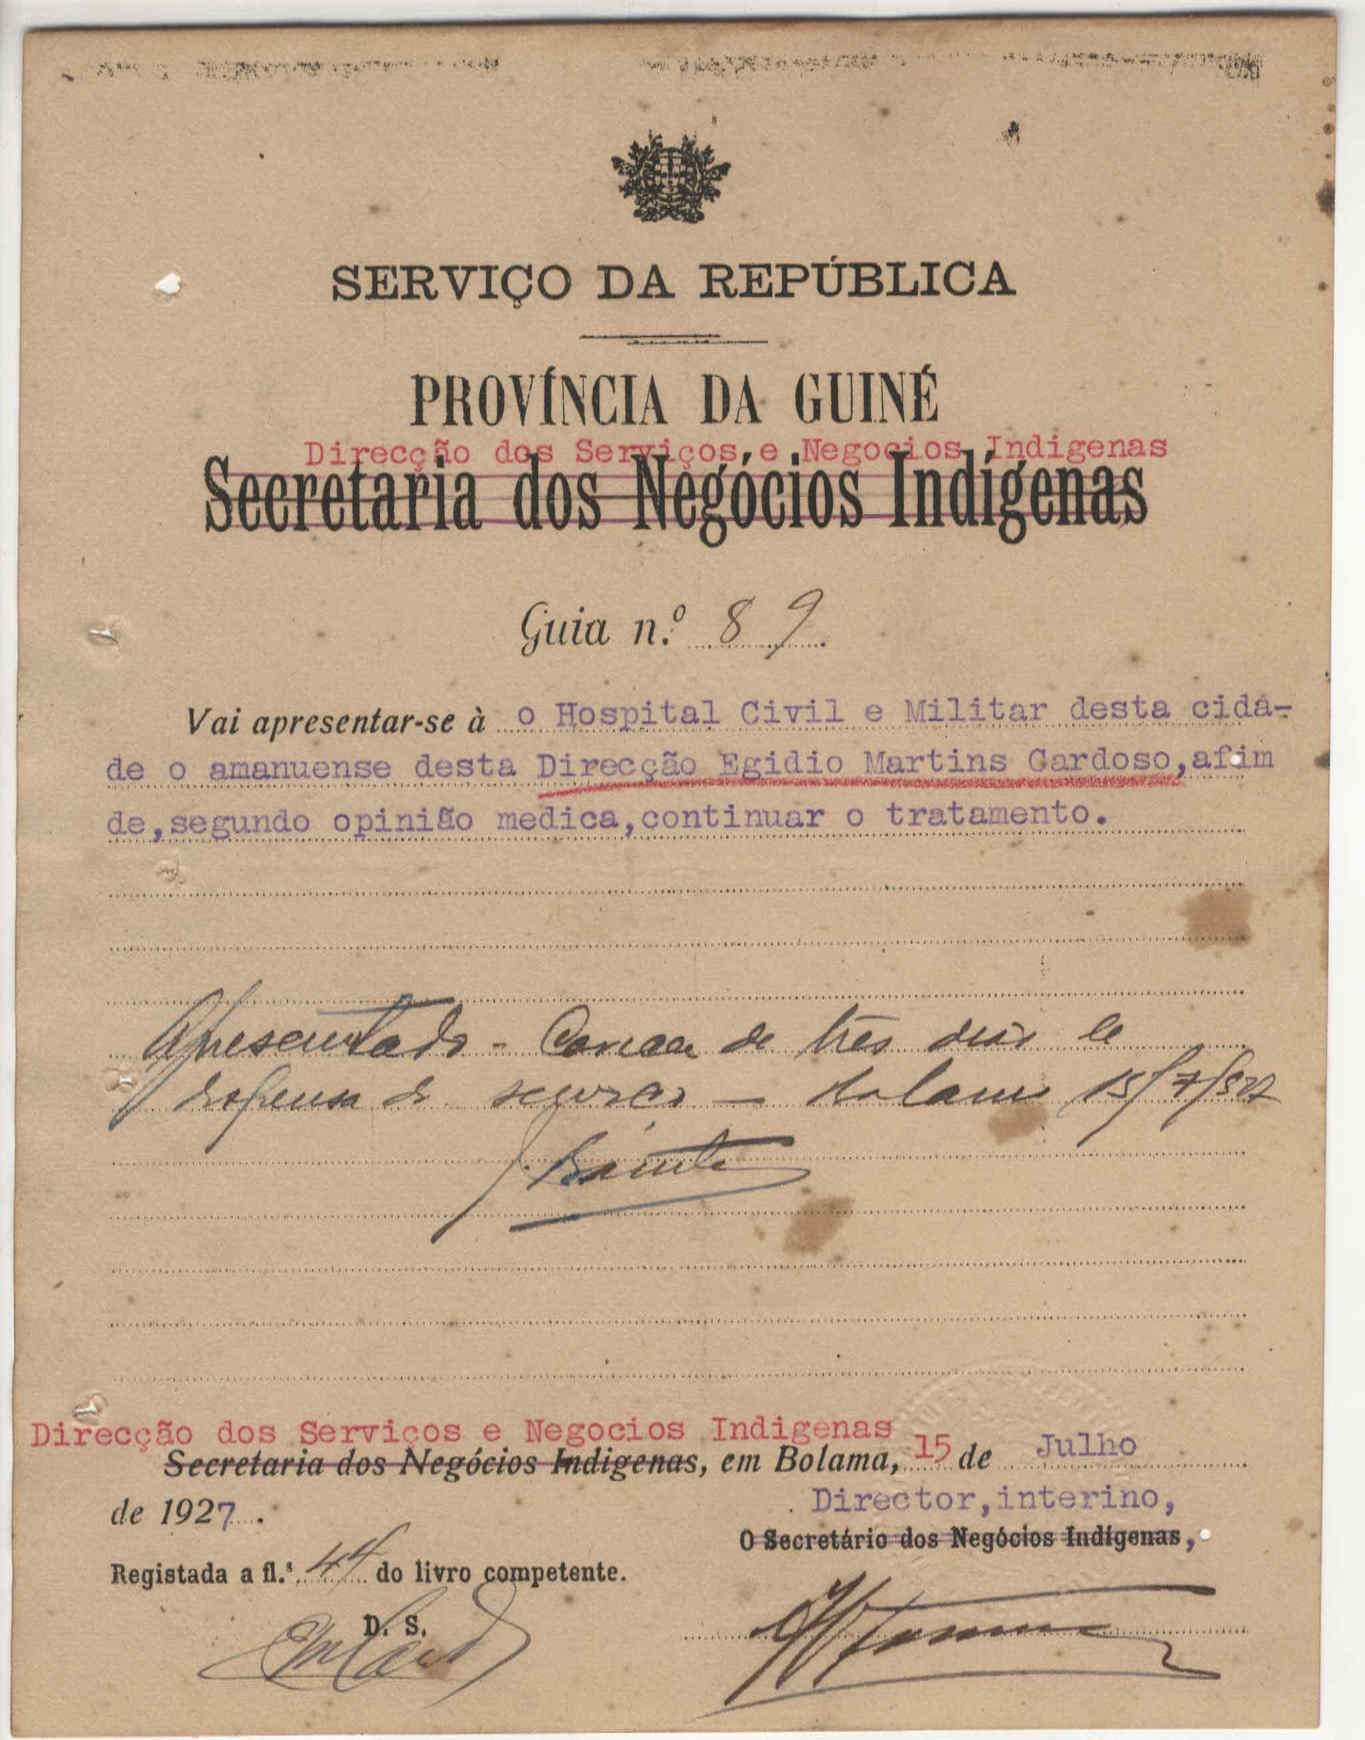 SERVIÇO DA REPÚBLICA
PROVÍNCIA DA GUINÉ
Direcção dos Serviços e Negocios Indigenas
Secretaria dos Negócios Indígenas
Guia n.º 89.
Vai apresentar-se à o Hospital Civil e Militar desta cida-
de o amanuense desta Direcção Egidio Martins Cardoso,afim
de,segundo opinião medica,continuar o tratamento.
Apresentado - Carece de três dias de
dispensa de serviço — Bolama 15/7/927
Direcção dos Serviços e Negocios Indigenas
Secretaria dos Negócios Indigenas, em Bolama, 15 de Julho
de 1927.
Director,interino,
O Secretário dos Negócios Indígenas,
Registada a fl.ª 44 do livro competente.
D. S.